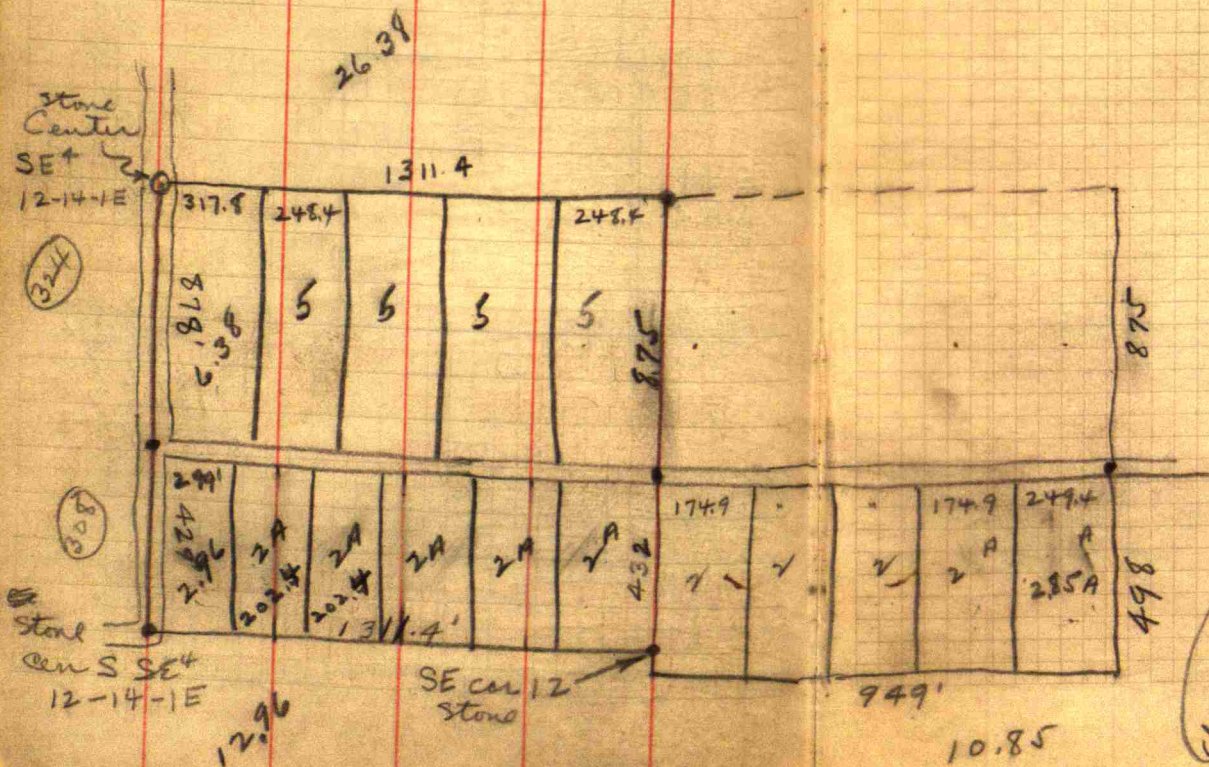 26.38
Stone
Center
SE⁴
12-14-1E
1311.4
317.8
248.4
248.4
324
878'
6.38
5
5
5
5
875
875
308
299'
2.96
2A
202.4
2A
202.4
2A
2A
2A
432
174.9
2
2
2
174.9
2 A
249.4
A
2.85A
498
1311.4'
Stone
Cen S SE⁴
12-14-1E
SE cor 12
Stone
949'
12.96
10.85